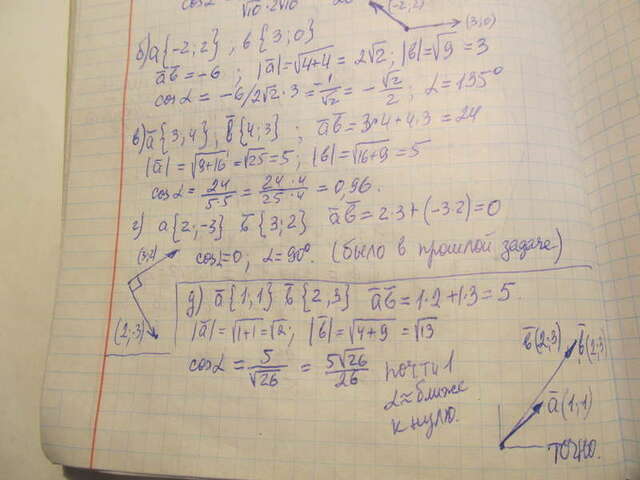 cosα = √10·2√10
(-2; 2)
(3; 0)
б) a{-2; 2}, b{3; 0}
ab = -6; |a| = √4+4 = 2√2; |b| = √9 = 3
cosα = -6/2√2·3 = -1/√2 = -√2/2; α = 135°
в) a{3, 4}, b{4; 3}; ab = 3·4 + 4·3 = 24
|a| = √9+16 = √25 = 5; |b| = √16+9 = 5
cosα = 24/5·5 = 24·4/25·4 = 0,96.
г) a{2; -3} b{3; 2} ab = 2·3 + (-3·2) = 0
(3; 2)
cosα = 0, α = 90°. (было в прошлой задаче)
(2; -3)
д) a{1, 1} b{2, 3} ab = 1·2 + 1·3 = 5.
|a| = √1+1 = √2; |b| = √4+9 = √13
cosα = 5/√26 = 5√26/26 почти 1
α ≈ ближе
к нулю.
b(2; 3)
b(2; 3)
a(1; 1)
точно.